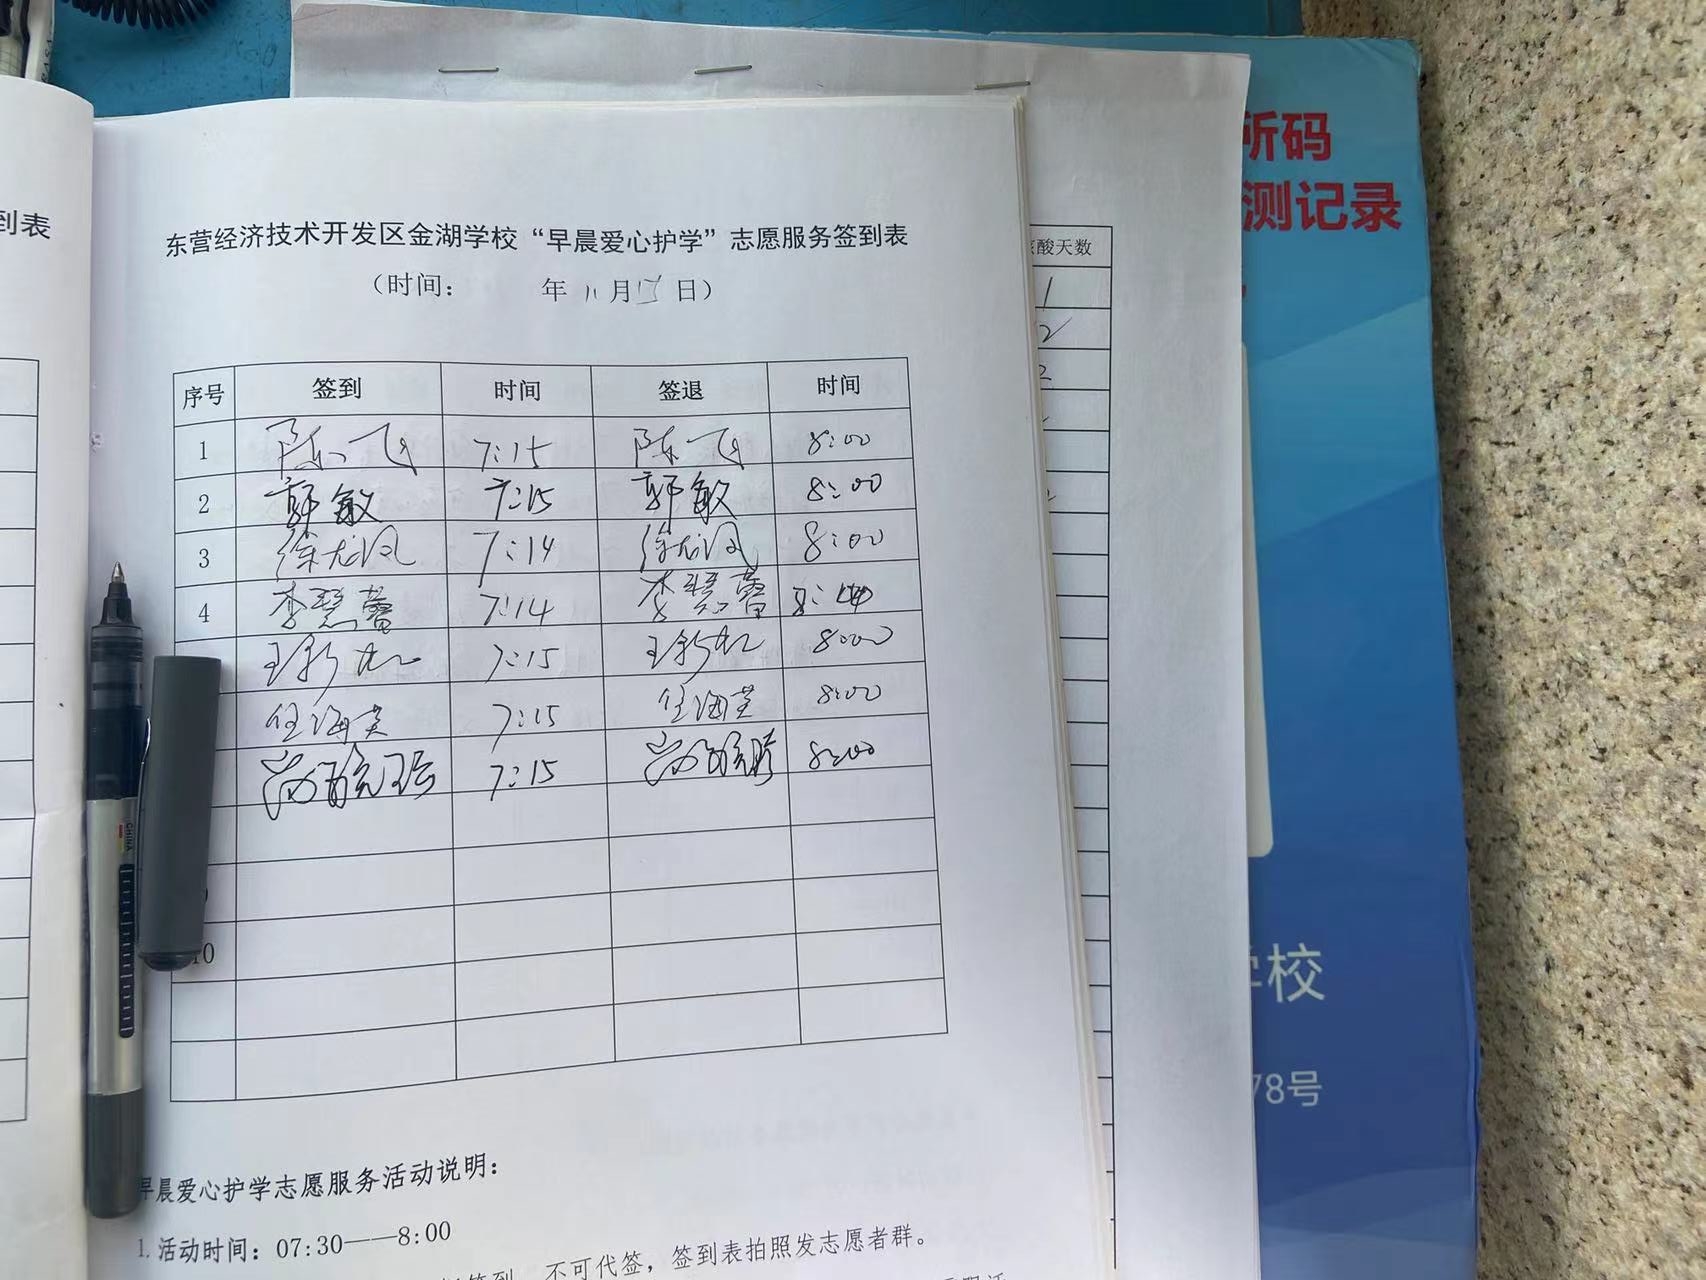 到表
东营经济技术开发区金湖学校“早晨爱心护学”志愿服务签到表
（时间： 年 11 月 日）
序号 签到 时间 签退 时间
1 陈飞 7:15 陈飞 8:00
2 郭敏 7:15 郭敏 8:00
3 徐龙凤 7:14 徐龙凤 8:00
4 李慧蕾 7:14 李慧蕾
7:15 8:00
任海芝 7:15 任海芝 8:00
尚 7:15 尚 8:00
10
早晨爱心护学志愿服务活动说明：
1.活动时间：07:30——8:00
签到，不可代签，签到表拍照发志愿者群。
酸天数
1
2
2
所码
测记录
学校
78号
CHINA